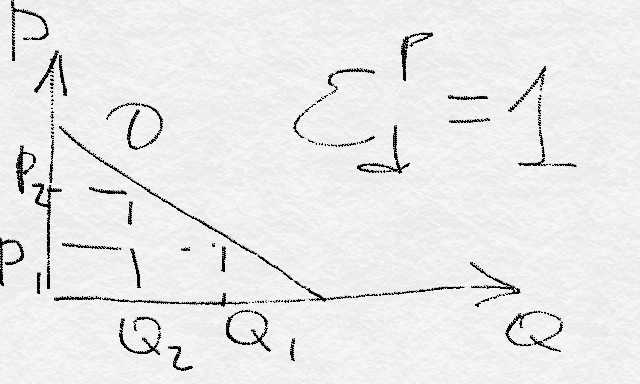 P
D
ε_d^P = 1
P₂
P₁
Q₂ Q₁ Q